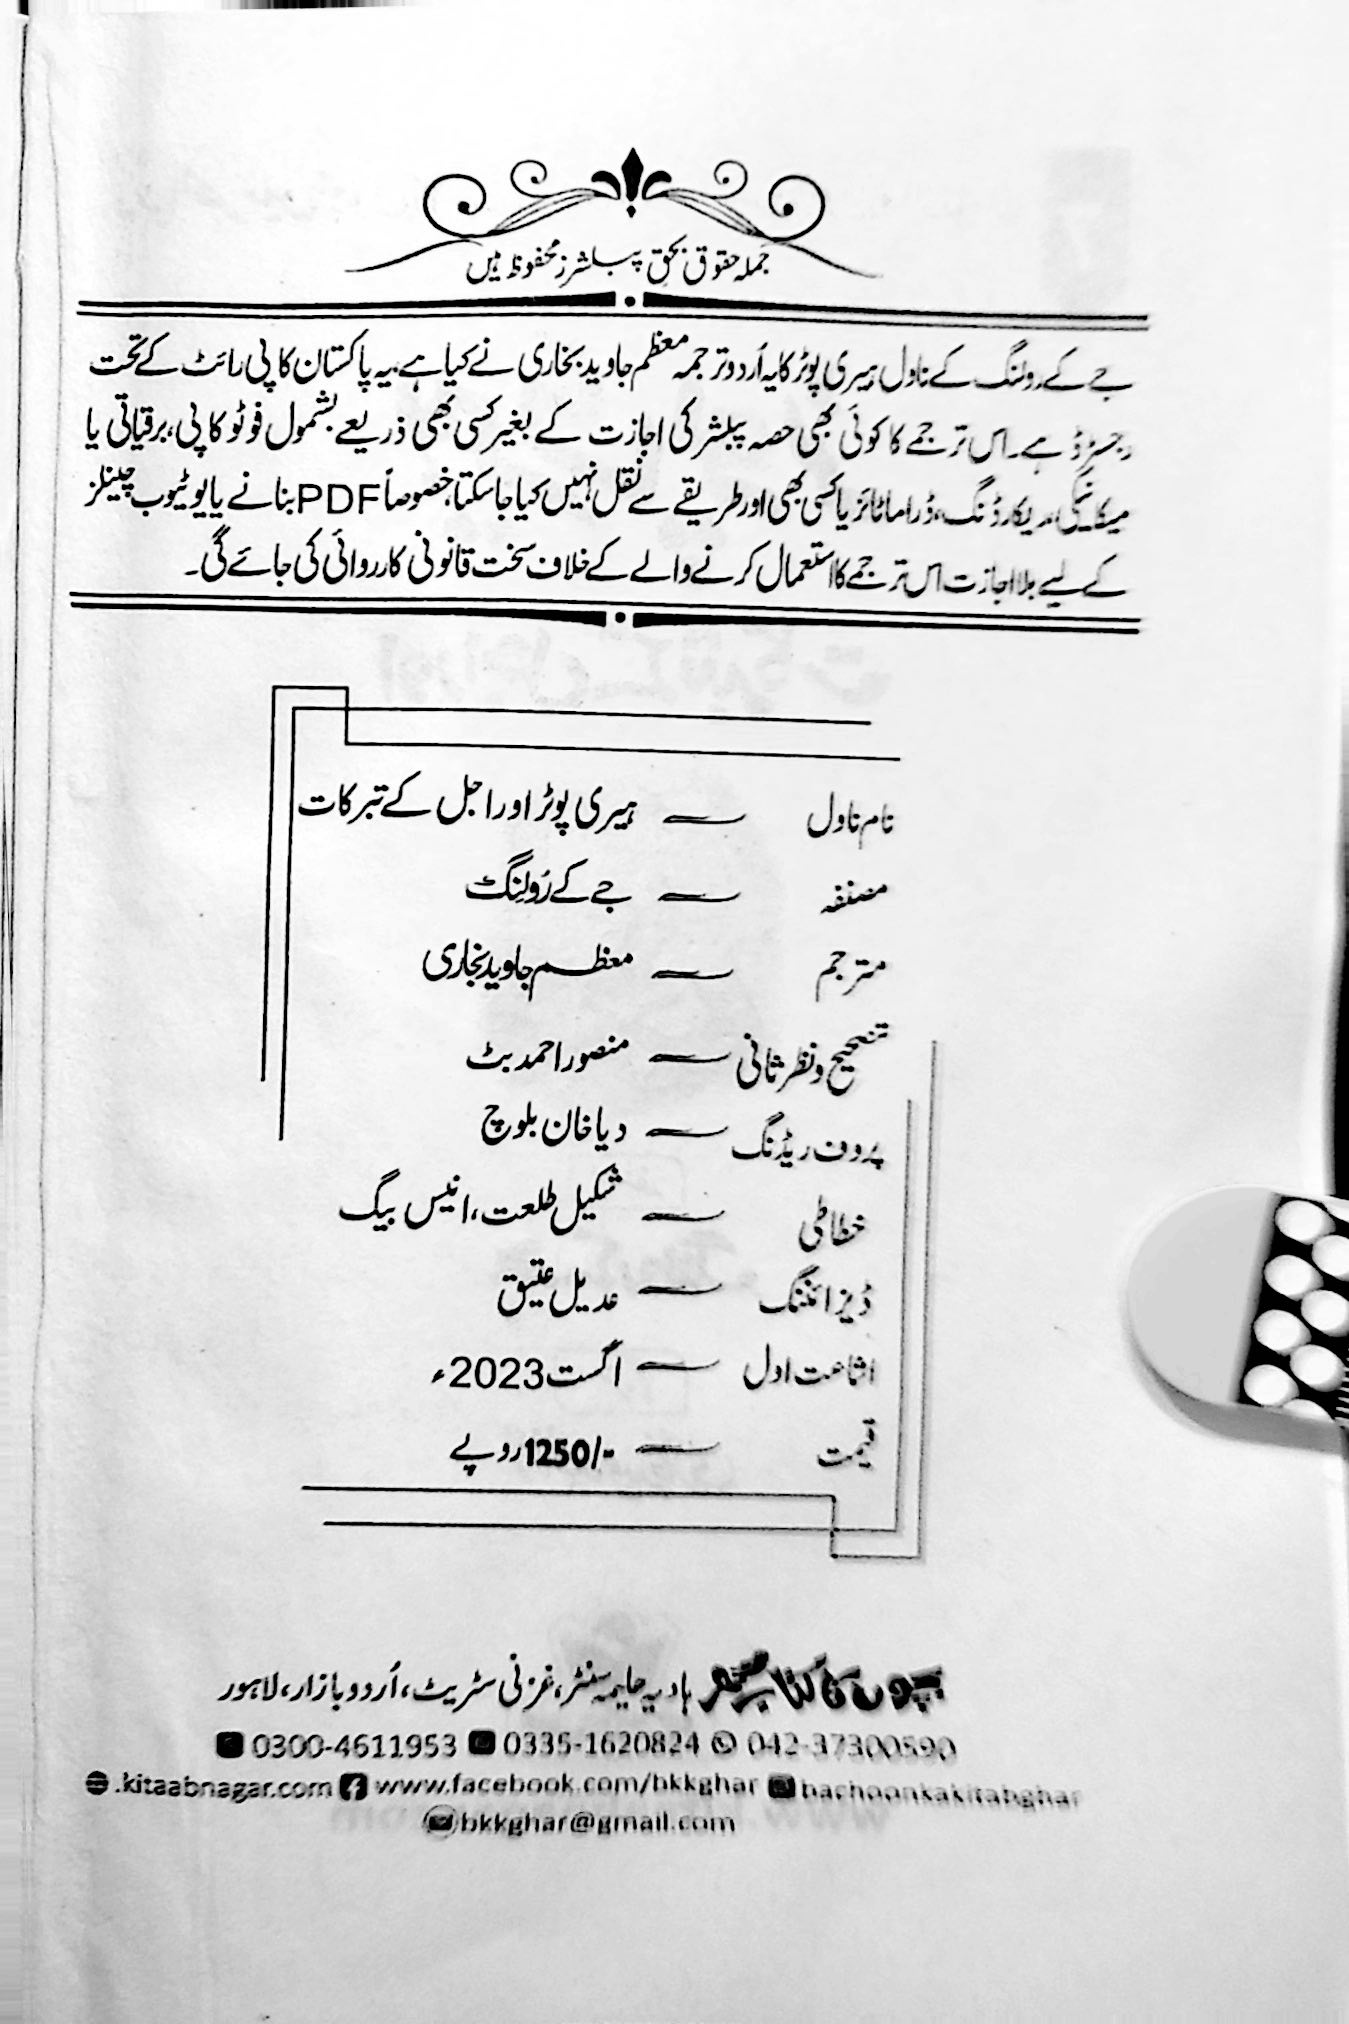 جملہ حقوق بحق پبلشرز محفوظ ہیں
جے کے رولنگ کے ناول ہیری پوٹر کا یہ اُردو ترجمہ معظم جاوید بخاری نے کیا ہے، یہ پاکستان کاپی رائٹ کے تحت
رجسٹرڈ ہے۔ اس ترجمے کا کوئی بھی حصہ پبلشر کی اجازت کے بغیر کسی بھی ذریعے بشمول فوٹو کاپی، برقیاتی یا
میکانیکی، ریکارڈنگ، ڈراماٹائز یا کسی بھی اور طریقے سے نقل نہیں کیا جا سکتا، خصوصاً PDF بنانے یا یوٹیوب چینلز
کے لیے بلا اجازت اس ترجمے کا استعمال کرنے والے کے خلاف سخت قانونی کارروائی کی جائے گی۔
نام ناول — ہیری پوٹر اور اجل کے تبرکات
مصنفہ — جے کے رَولِنگ
مترجم — معظم جاوید بخاری
تصحیح و نظر ثانی — منصور احمد بٹ
پروف ریڈنگ — دیا خان بلوچ
خطاطی — شکیل طلعت، انیس بیگ
ڈیزائننگ — عدیل عتیق
اشاعت اول — اگست 2023ء
قیمت — 1250/- روپے
بچوں کا کتاب گھر ہادیہ حلیمہ سنٹر، غزنی سٹریٹ، اُردو بازار، لاہور
0300-4611953 0335-1620824 042-37300590
.kitaabnagar.com www.facebook.com/bkkghar bachoonkakitabghar
bkkghar@gmail.com